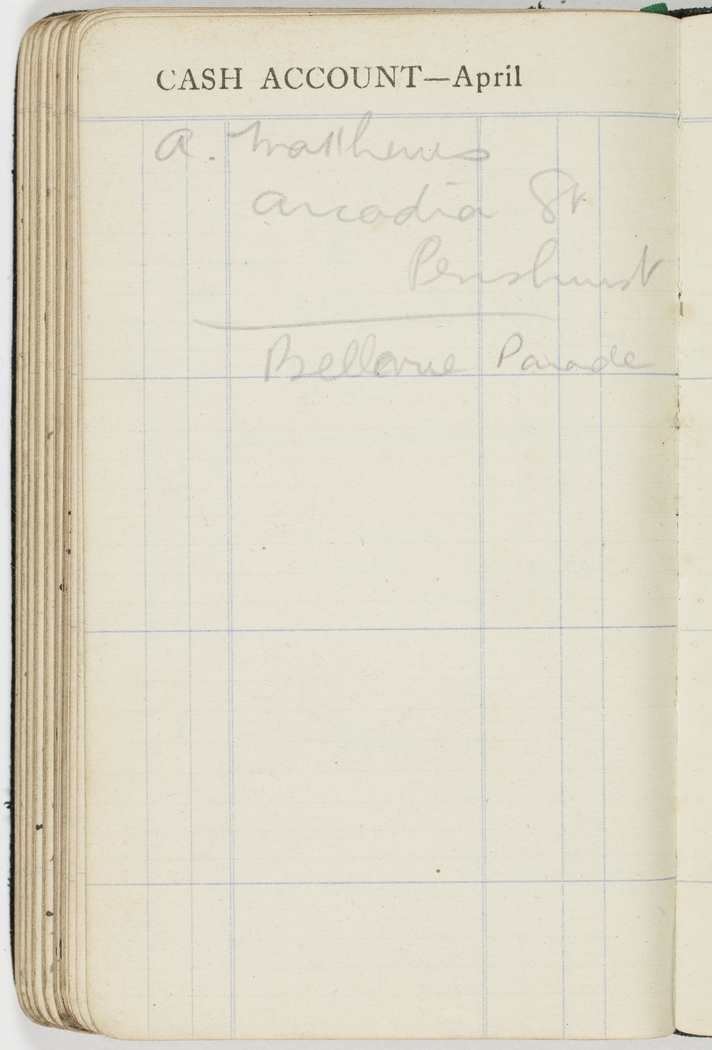 CASH ACCOUNT—April
A. Matthews
Arcadia St
Penshurst
Bellevue Parade